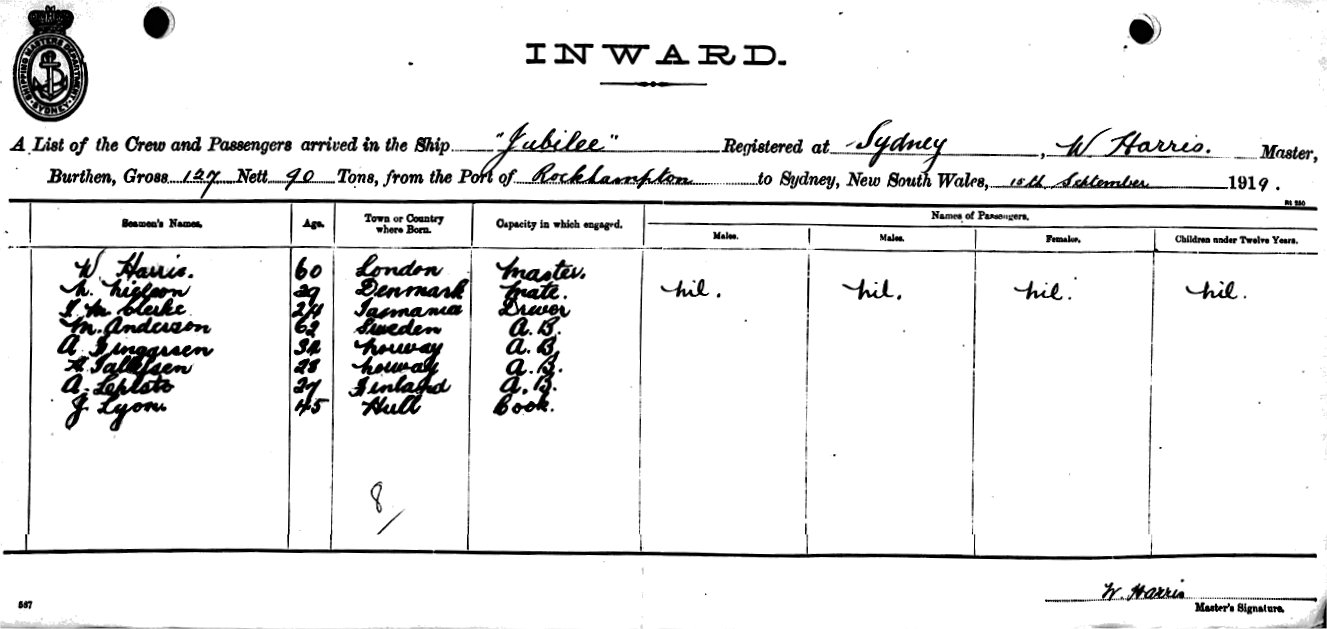 SHIPPING MASTERS DEPARTMENT SYDNEY
INWARD.
A List of the Crew and Passengers arrived in the Ship "Jubilee" Registered at Sydney, W Harris. Master,
Burthen, Gross 127 Nett 90 Tons, from the Port of Rockhampton to Sydney, New South Wales, 15th September 1919.
Seamen's Names. Age. Town or Country where Born. Capacity in which engaged. Names of Passengers.
Males. Males. Females. Children under Twelve Years.
W Harris. 60 London Master.
N. Nielson 29 Denmark Mate. nil. nil. nil. nil.
Clerke 24 Tasmania
M. Anderson 62 Sweden A.B.
A 32 Norway A.B.
28 Norway A.B.
A. 27 Finland A.B.
J Lyon 45 Hull Cook.
8/
W. Harris
Master's Signature.
567